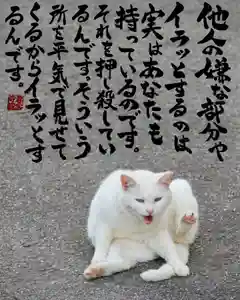 他人の嫌な部分や
イラッとするのは
実はあなたも
持っているのです。
それを押し殺してい
るんです。そういう
所を平気で見せて
くるからイラッとす
るんです。